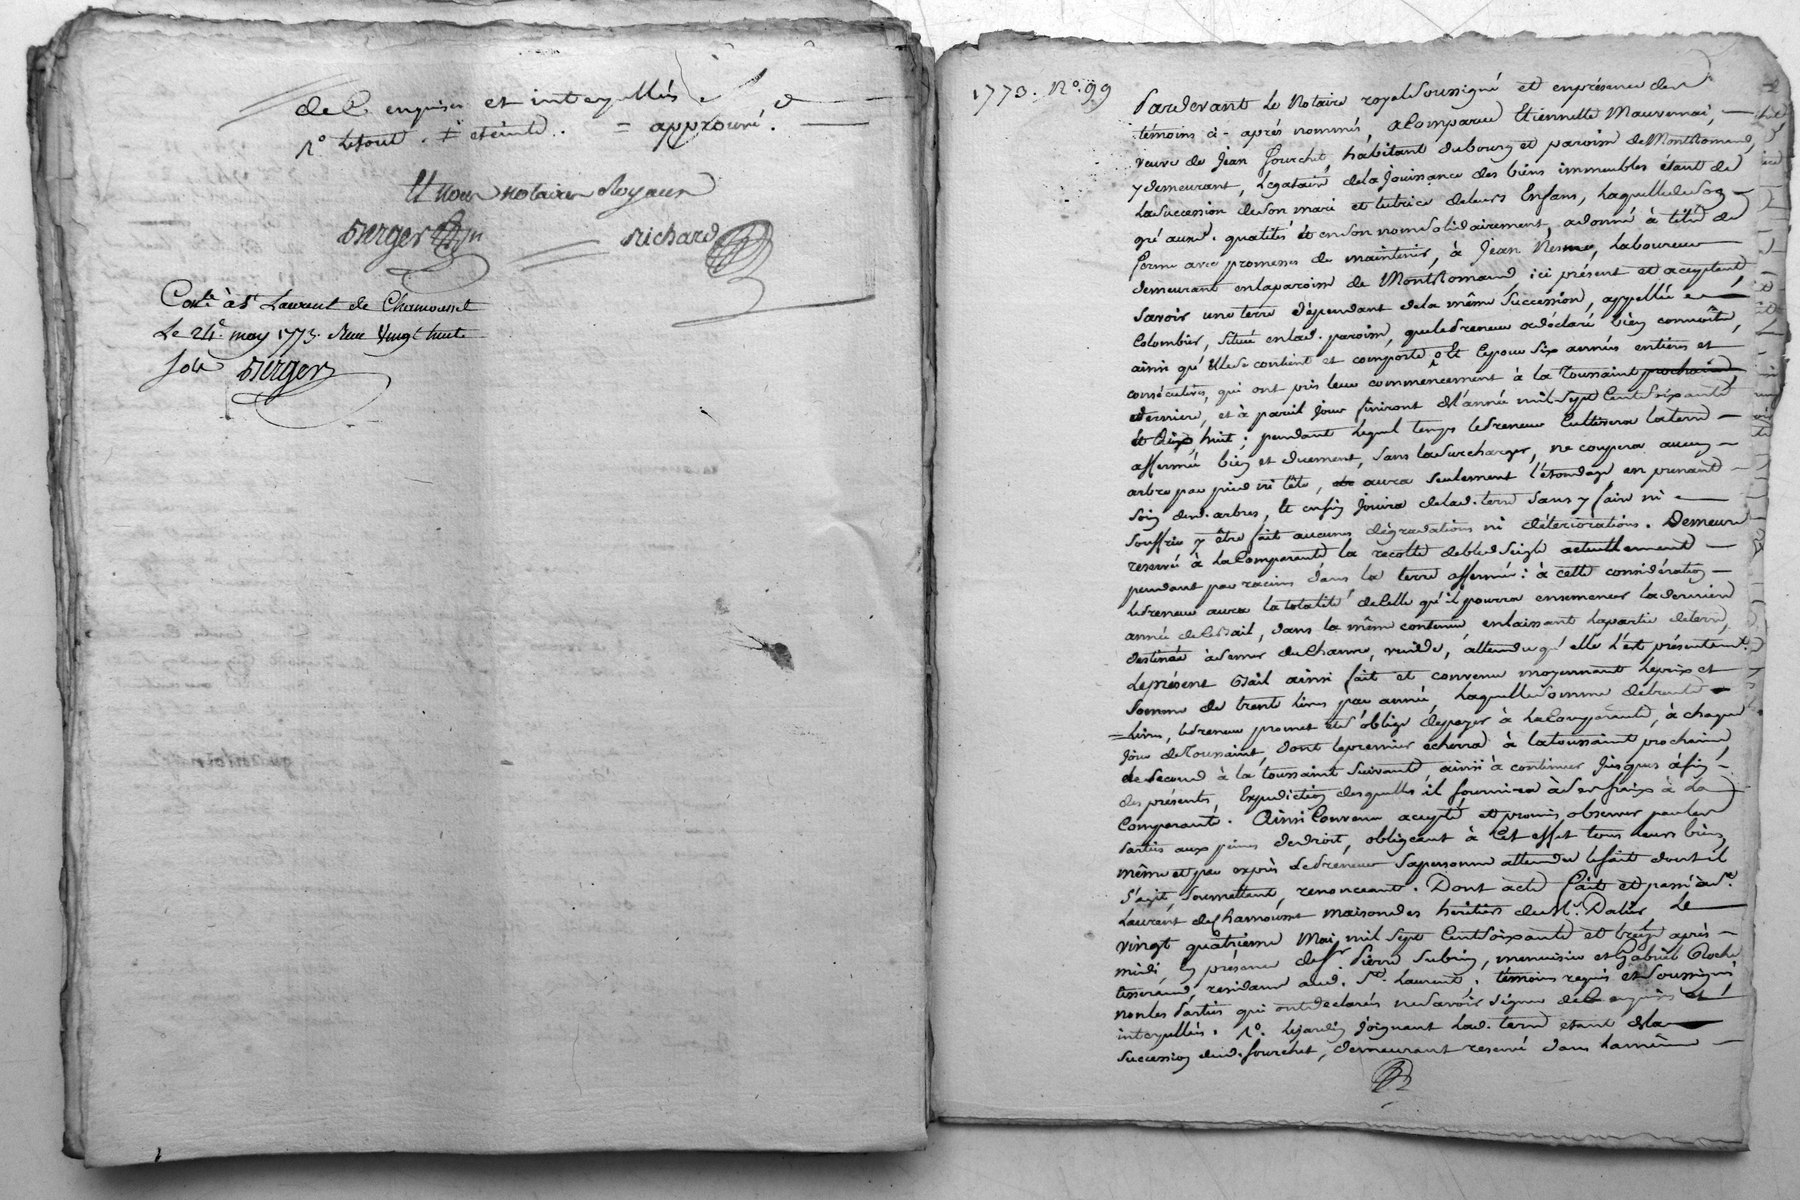 de ce enquis et interpellés
1º le tout . # éteinte . = approuvé .
notaires Royaux
Berger Richard
Conlé à St Laurent de Chamousset
Le 24e may 1773. Reçu vingt huit
sols Berger
1773. Nº. 99
Pardevant Le Notaire royal soussigné et en présence des
témoins ci-après nommés, a Comparue Etiennette Mauvernai,
veuve de Jean fourchet, habitant du bourg et paroisse de Montromand,
y demeurant, Légataire de la Jouissance des biens immeubles étant de
La succession de son mari et tutrice de leurs Enfans, Laquelle de son
gré auxd. qualités et en son nom solidairement, a donné à titre de
ferme avec promesse de maintenir, à Jean Nesme, Laboureur
demeurant en la paroisse de Montromand ici présent et acceptant,
Savoir une terre dépendant de la même succession, appellée
Colombier, située en lad. paroisse, que le preneur a déclaré bien connoître,
ainsi qu'elle se contient et comporte Et ce pour six années entières et
consécutives, qui ont pris leur commencement à la Toussaint prochaine,
dernière, et à pareil jour finiront de l'année mil sept Cent soixante
et dix huit ; pendant lequel temps le preneur Cultivera la terre
affermée bien et duement, sans la surcharger, ne coupera aucun
arbre par pied ni tête, aura seulement l'étondage en prenant
soin desd. arbres, Et enfin Jouira de lad. terre sans y faire ni
souffrir y être fait aucunes dégradations ni déteriorations. Demeure
reservé à La Comparante la recolte de bled seigle actuellement
pendant par racines dans la terre affermée : à cette considération
le preneur aura la totalité de celle qu'il pourra ensemencer la dernière
année de ce Bail, dans la même contenue en laissant la partie de terre,
destinée à semer du Chanvre, vuide, attendu qu'elle l'est présentemt.
Le présent Bail ainsi fait et convenu moyennant le prix et
somme de trente livres par année, Laquelle somme de trente
= livres, le preneur promet et s'oblige de payer à La Comparante, à chaque
jour de Toussaint, dont le premier écherra à la toussaint prochaine,
le second à la toussaint suivante, ainsi à continuer jusques à fin
des présentes, Expédition desquelles il fournira à ses fraix à La
Comparante. Ainsi Convenu accepté et promis observer par les
Parties aux peines de droit, obligeant à Cet effet tous leurs biens
même et par exprès Le Preneur sa personne attendu le fait dont il
s'agit, soumettant, renonceant. Dont acte fait et passé à St.
Laurent de Chamousset maison des héritiers de Mr. Dalier Le
vingt quatrieme Mai mil sept Cent soixante et treize après
midi, En présence de sr Pierre Subrin, menuisier et Gabriel Roche
tisserand, residans aud. St. Laurent, témoins requis et soussignés
non les Parties qui ont déclarés ne savoir signer de ce enquis et
interpellés. 1º. le jardin joignant Lad. terre étant de la
succession dud. fourchet, demeurant reservé dans la même